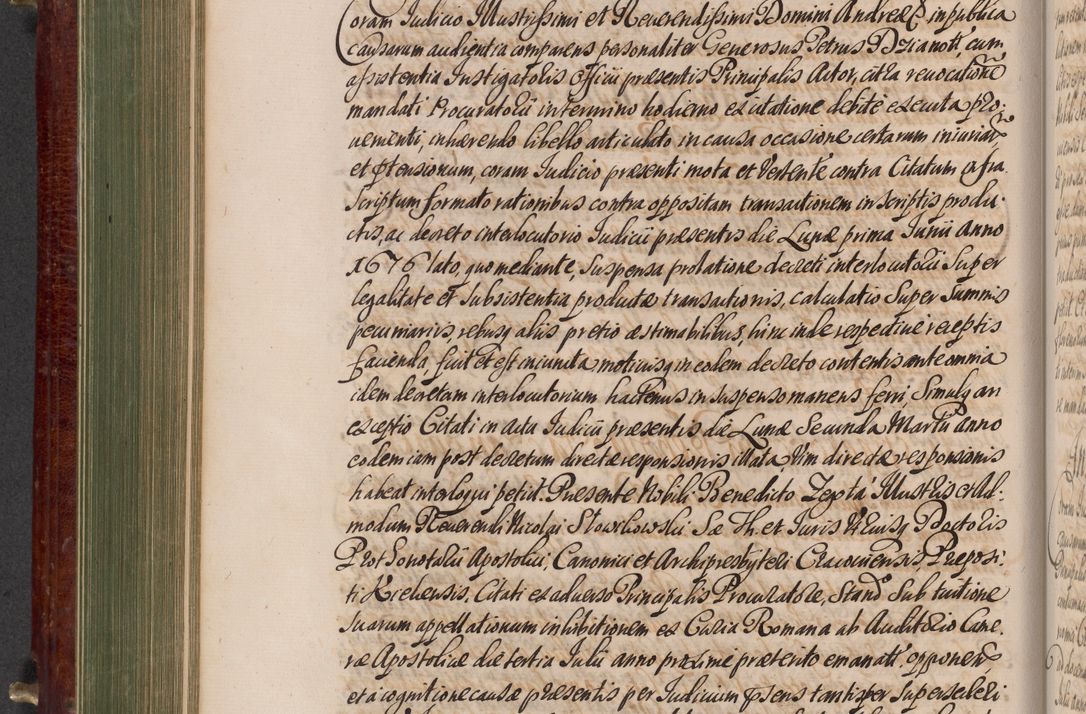 Coram Iudicio Illustrissimi et Reverendissimi Domini Andreæ in publica
causarum audientia comparens personaliter Generosus Petrus Dzianott, cum
assistentia Instigatoris Officii præsentis Principalis Actor, citra revocatione
mandati Procuratorii in termino hodierno ex citatione debite executa pro-
venienti, inhærendo libello articulato in causa occasione certarum iniuriar
et prætensionum, coram Iudicio præsenti mota et Vertente contra Citatum infra
Scriptum formato rationibus contra oppositam transactionem in scriptis produ-
ctis, ac decreto interlocutorio Iudicii præsentis die Lunæ prima Iunii Anno
1676 lato, quo mediante, suspensa prolatione decreti interlocutorii Super
legalitate et Subsistentia productæ transactionis, calculatio Super Summis
pecuniariis, rebusq aliis pretio æstimabilibus, hinc inde respective receptis
facienda, fuit et est iniuncta motivisq in eodem decreto contentis ante omnia
idem decretum interlocutorium hactenus in suspenso manens ferri, Simulq an
exceptio Citati in actu Iudicii præsentis die Lunæ Secunda Martii Anno
eodem iam post decretum directæ responsionis illata Vim directæ responsionis
habeat interloqui petiit. Præsente Nobili Benedicto Zeptá Illustris et Ad-
modum Reverendi Nicolai Słowikowski Sæ Th. et Iuris Utriusq Doctoris
Prothonotarii Apostolici, Canonici et Archipresbyteri Cracoviensis, Præposi-
ti Kielcensis, Citati ex adverso Principalis Procuratore, Stand Sub tuitione
Suarum appellationum inhibitionem ex Curia Romana ab Auditorio Came-
ræ Apostolicæ die tertia Iulii anno proxime præterito emanat, opponen
et a cognitione causæ præsentis per Iudicium præsens tantisper Supersederi